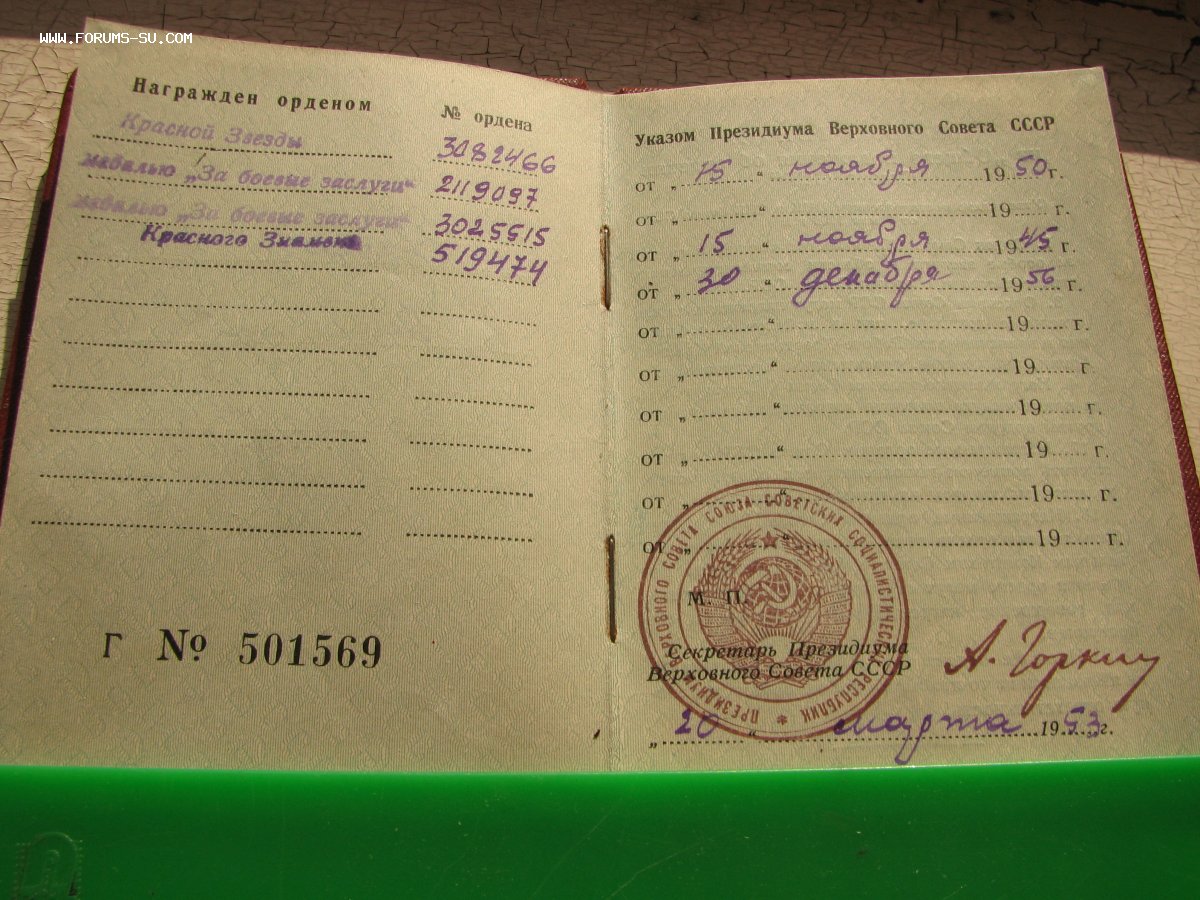 WWW.FORUMS-SU.COM
Награжден орденом № ордена
Красной Звезды 3082466
медалью „За боевые заслуги“ 2119097
медалью „За боевые заслуги“ 3025515
Красного Знамени 519474
Г № 501569
Указом Президиума Верховного Совета СССР
от „ 15 “ ноября 1950г.
от „ “ 19 г.
от „ 15 “ ноября 1945 г.
от „ 30 “ декабря 1956 г.
от „ “ 19 г.
от „ “ 19 г.
от „ “ 19 г.
от „ “ 19 г.
от „ “ 19 г.
от „ “ 19 г.
ПРЕЗИДИУМ ВЕРХОВНОГО СОВЕТА СОЮЗА СОВЕТСКИХ СОЦИАЛИСТИЧЕСКИХ РЕСПУБЛИК
М. П.
Секретарь Президиума
Верховного Совета СССР А. Горкин
„ 20 “ марта 1953 г.